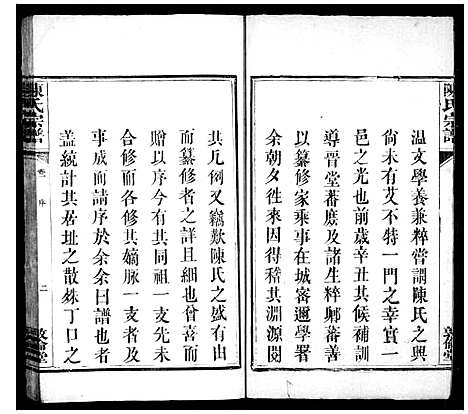 陳氏宗譜
溫文學養兼粹嘗謂陳氏之興
尚未有艾不特一門之幸實一
邑之光也前歲辛丑其候補訓
導晉堂蕃庶及諸生粹鄰蕃善
以纂修家乘事在城密邇學署
余朝夕徃来因得稽其淵源閱
其凡例又竊歎陳氏之盛有由
而纂修者之詳且細也曾喜而
致以序今有其同祖一支先未
合修而各修其嫡脉一支者及
事成而請序於余余曰譜也者
蓋統計其居址之散殊丁口之
陳氏宗譜
卷 序
二
敦倫堂